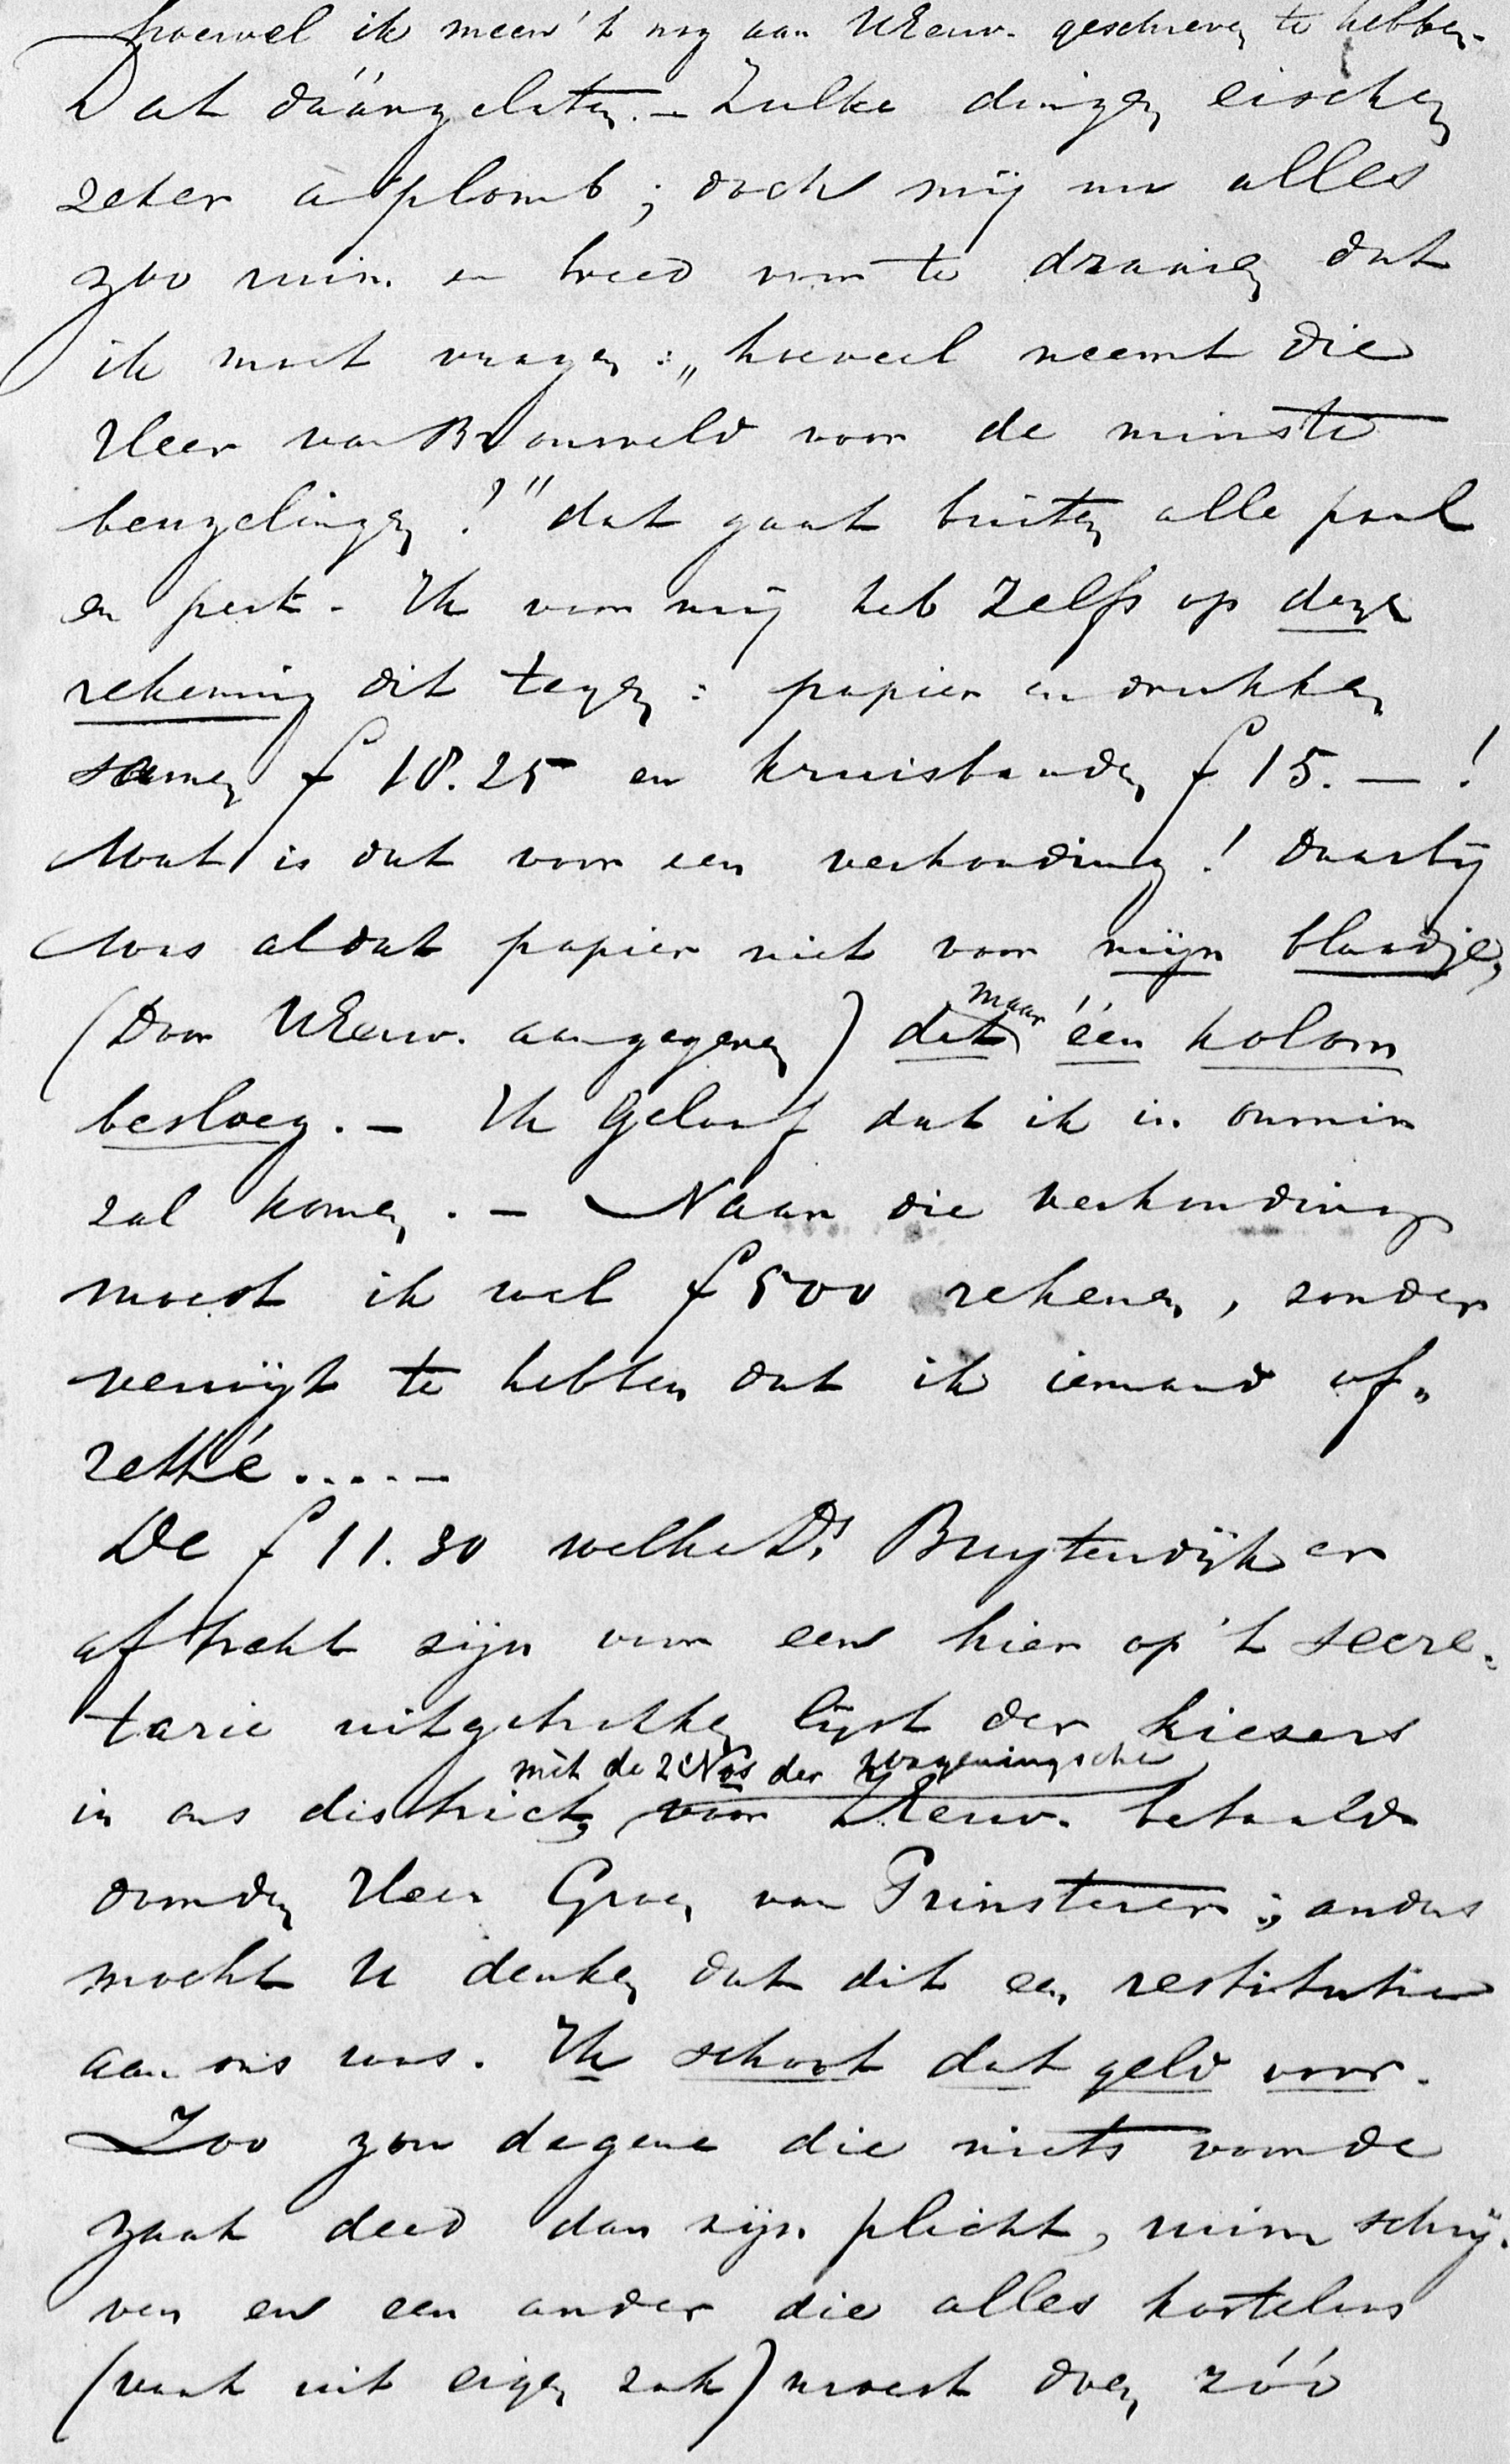 hoewel ik meen 't nog aan UEeuw. geschreven te hebben.
Dat dáárgelaten. – Zulke dingen eischen
zeker aplomb; doch mij nu alles
zoo ruim en breed voor te draaien dat
ik moet vragen: „hoeveel neemt die
Heer van Bronsveld voor de minste
beuzelingen?" dat gaat buiten alle paal
en perk. Ik voor mij heb zelfs op deze
rekening dit tegen: papier en drukken
samen f 18.25 en kruisbanden f 15.—!
Wat is dat voor een verhouding! Daarbij
was al dat papier niet voor mijn blaadje,
(door UEeuw. aangegeven) dat maar één kolom
besloeg. – Ik geloof dat ik in onmin
zal komen. – Naar die verhouding
moest ik wel f 500 rekenen, zonder
verwijt te hebben dat ik iemand af„
zette.....–
De f 11.30 welke Ds Buytendijk er
aftrekt zijn voor een hier op 't secre-
tarie uitgetrokken lijst der kiezers
mèt de 2 Nos der Wageningsche
in ons district, voor UEeuw. betaald
door den Heer Groen van Prinsterer; anders
mocht U denken dat dit een restitutie
aan ons was. Ik schoot dat geld voor.
Zoo zou degene die niets voor de
zaak deed dan zijn plicht, ruim schrij-
ven en een ander die alles kosteloos
(vaak uit eigen zak) moest doen zóó